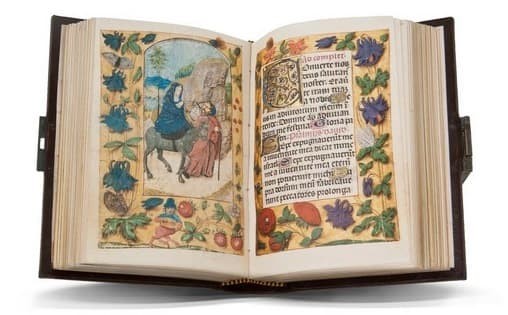 Ad complet
Conuerte nos
deus salutari
noster. Et auer
te iram tuā
a nobis
eus in adiutorium meum in
tende Domine ad adiuuan
dum me festina Gloria pa
Psalmus dauid
epe expugnauerunt me a
iuuentute mea dicat nunc
epe expugnauerunt
me a iuuentute mea
non potuerunt michi Su
pra dorsum meum fabricaue
runt peccatores prolonga